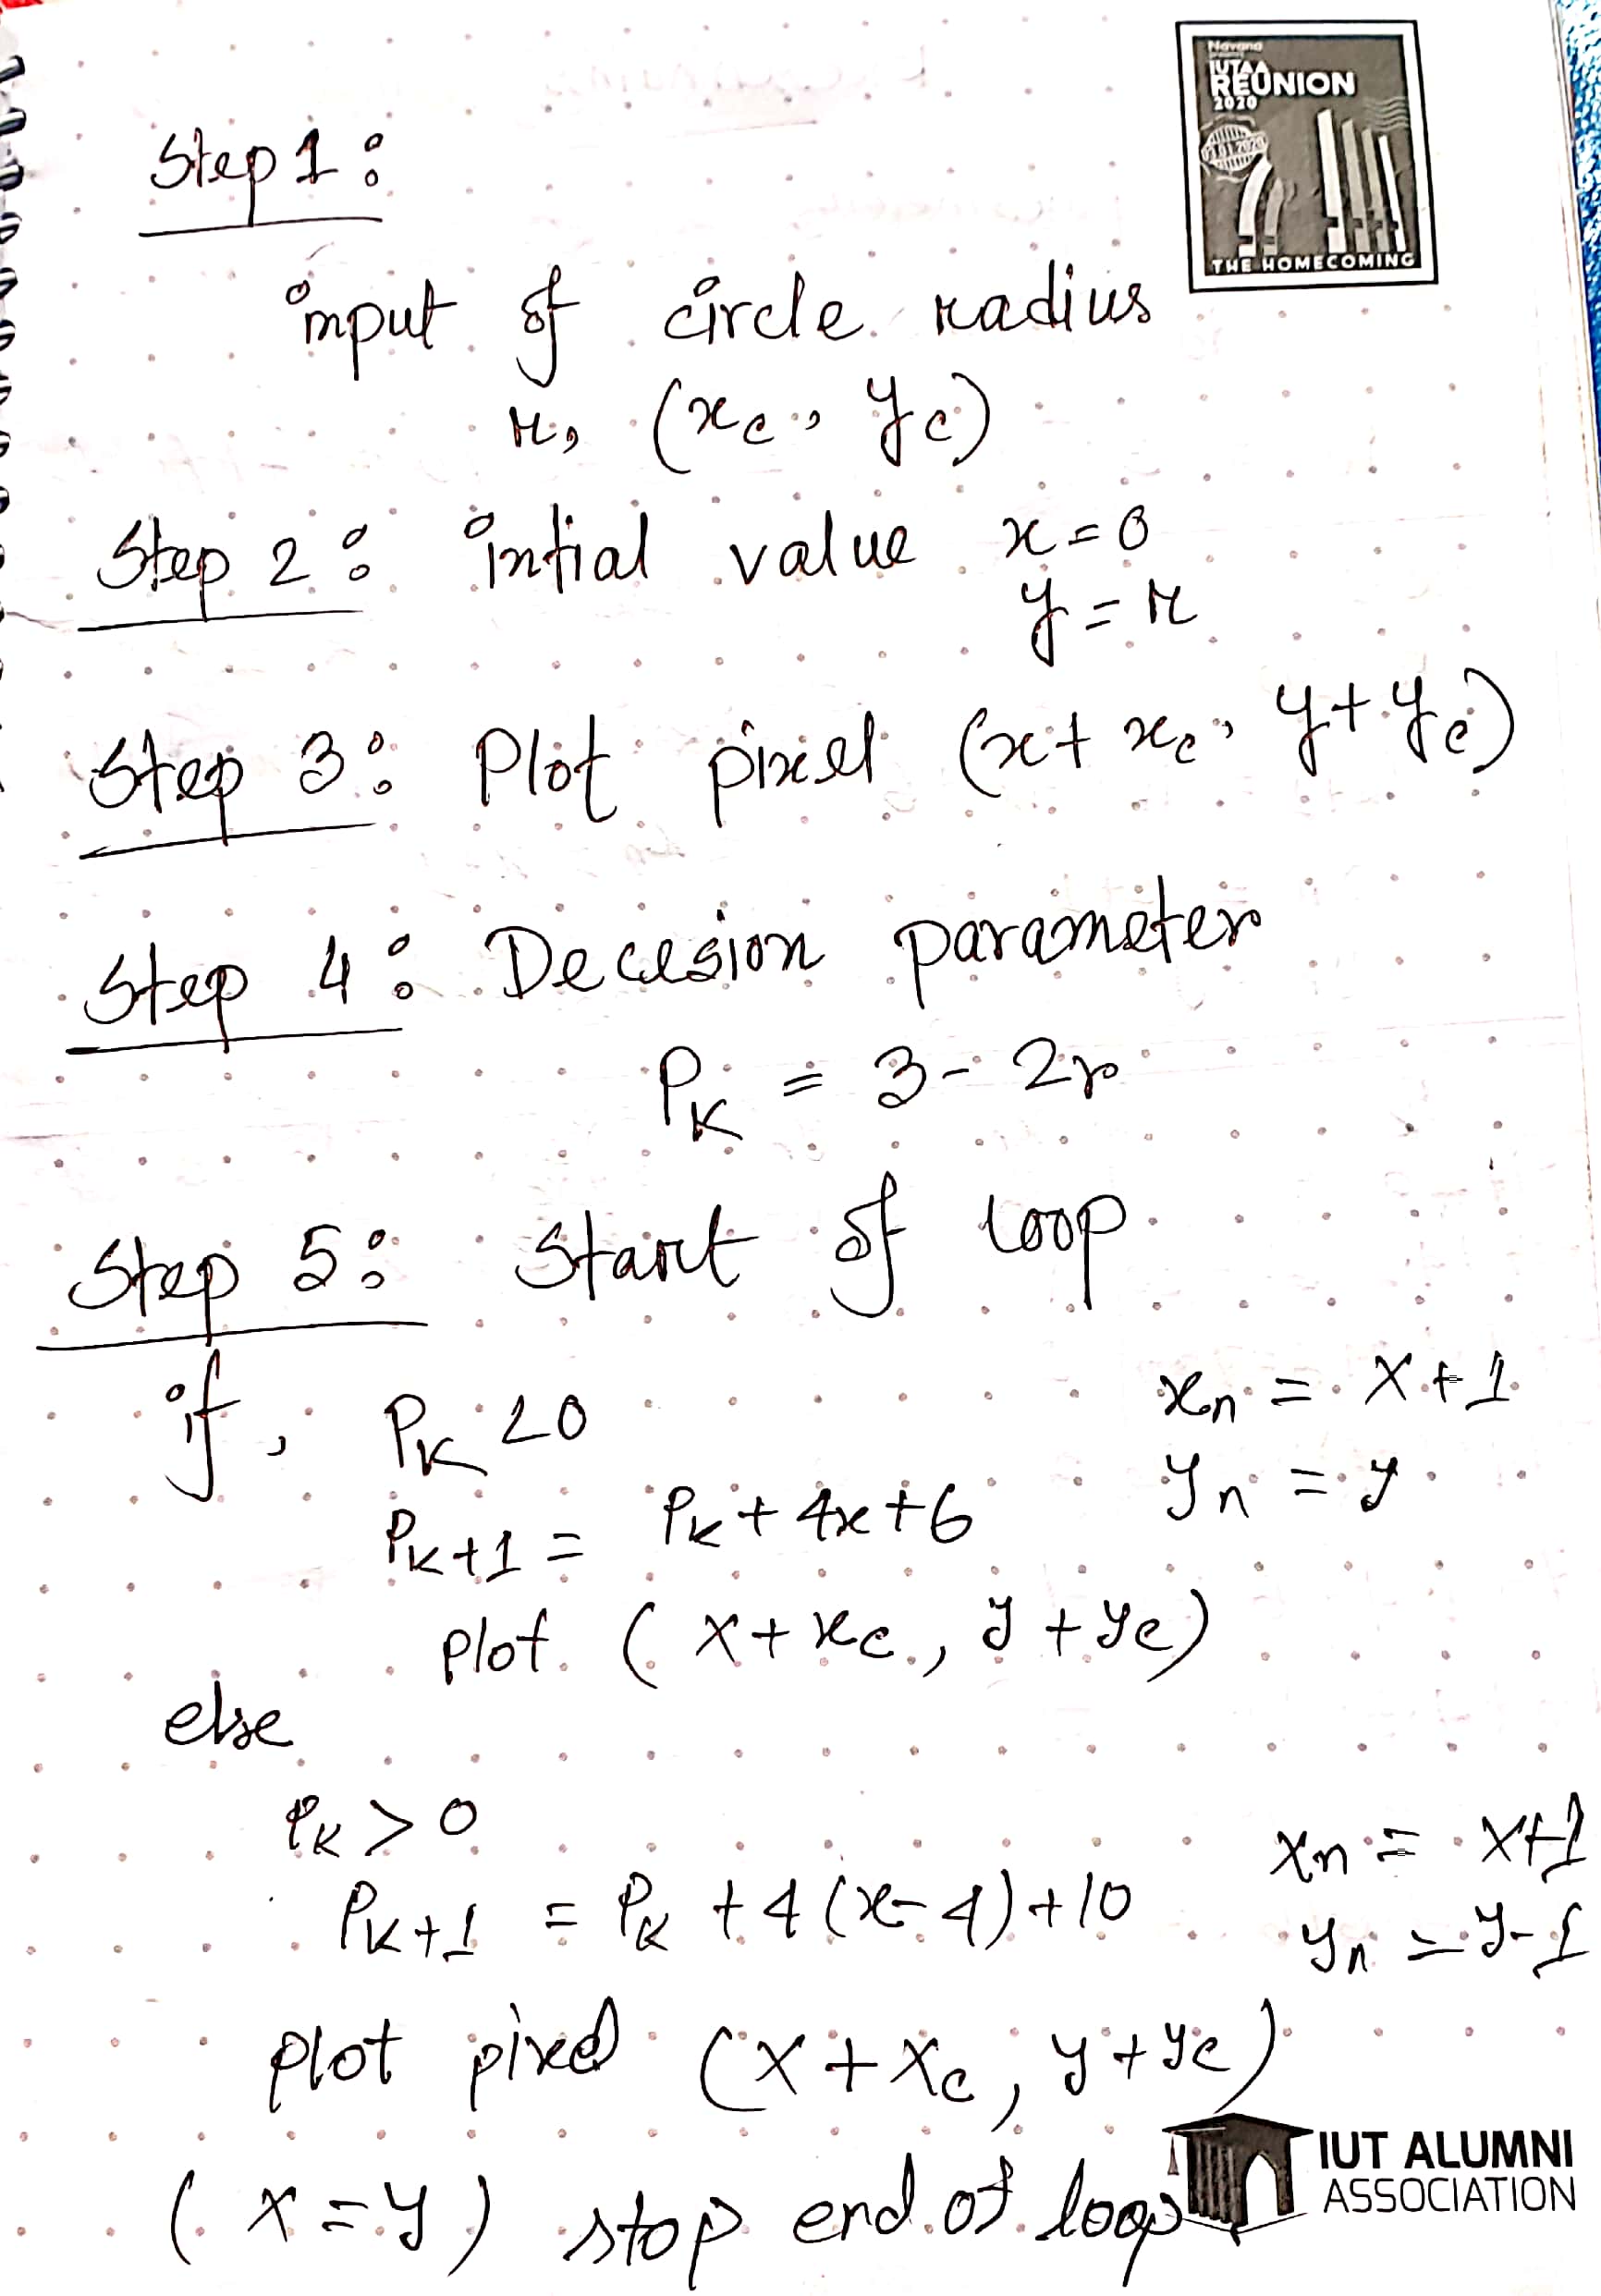 Navana
IUTAA
REUNION
2020
03.01.2020
THE HOMECOMING
Step 1 :
input of circle radius
r, (xc, yc)
Step 2 : intial value x = 0
y = r
Step 3 : Plot pixel (x + xc, y + yc)
Step 4 : Decesion parameter
PK = 3 - 2r
Step 5 : Start of loop
if, PK < 0 xn = x + 1
PK+1 = PK + 4x + 6 yn = y
plot (x + xc, y + yc)
else
PK > 0 xn = x+1
PK+1 = PK + 4(x-4)+10 yn = y-1
plot pixel (x + xc, y + yc)
(x = y) stop end of loop
IUT ALUMNI
ASSOCIATION